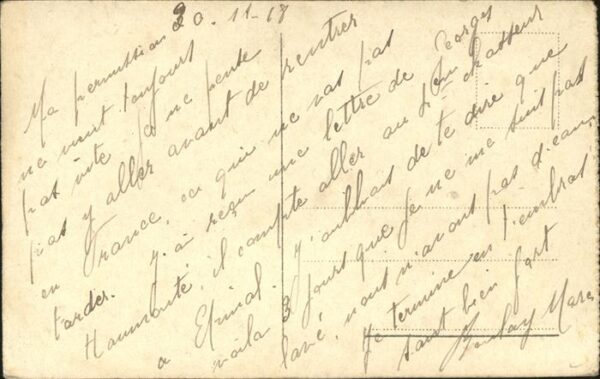 20. 11-18
Ma permission
ne vient toujours
pas vite. Je ne pense
pas y aller avant de rentrer
en France, ce qui ne vas pas
tarder. J'ai reçu une lettre de Georges
Haumonté, il compte aller au chasseur
a Epinal. J'oubliais de te dire que
voila 3 jours que je ne me suis pas
lavé, nous n'avons pas d'eau.
Je termine en t'embras
sant bien fort
Marc